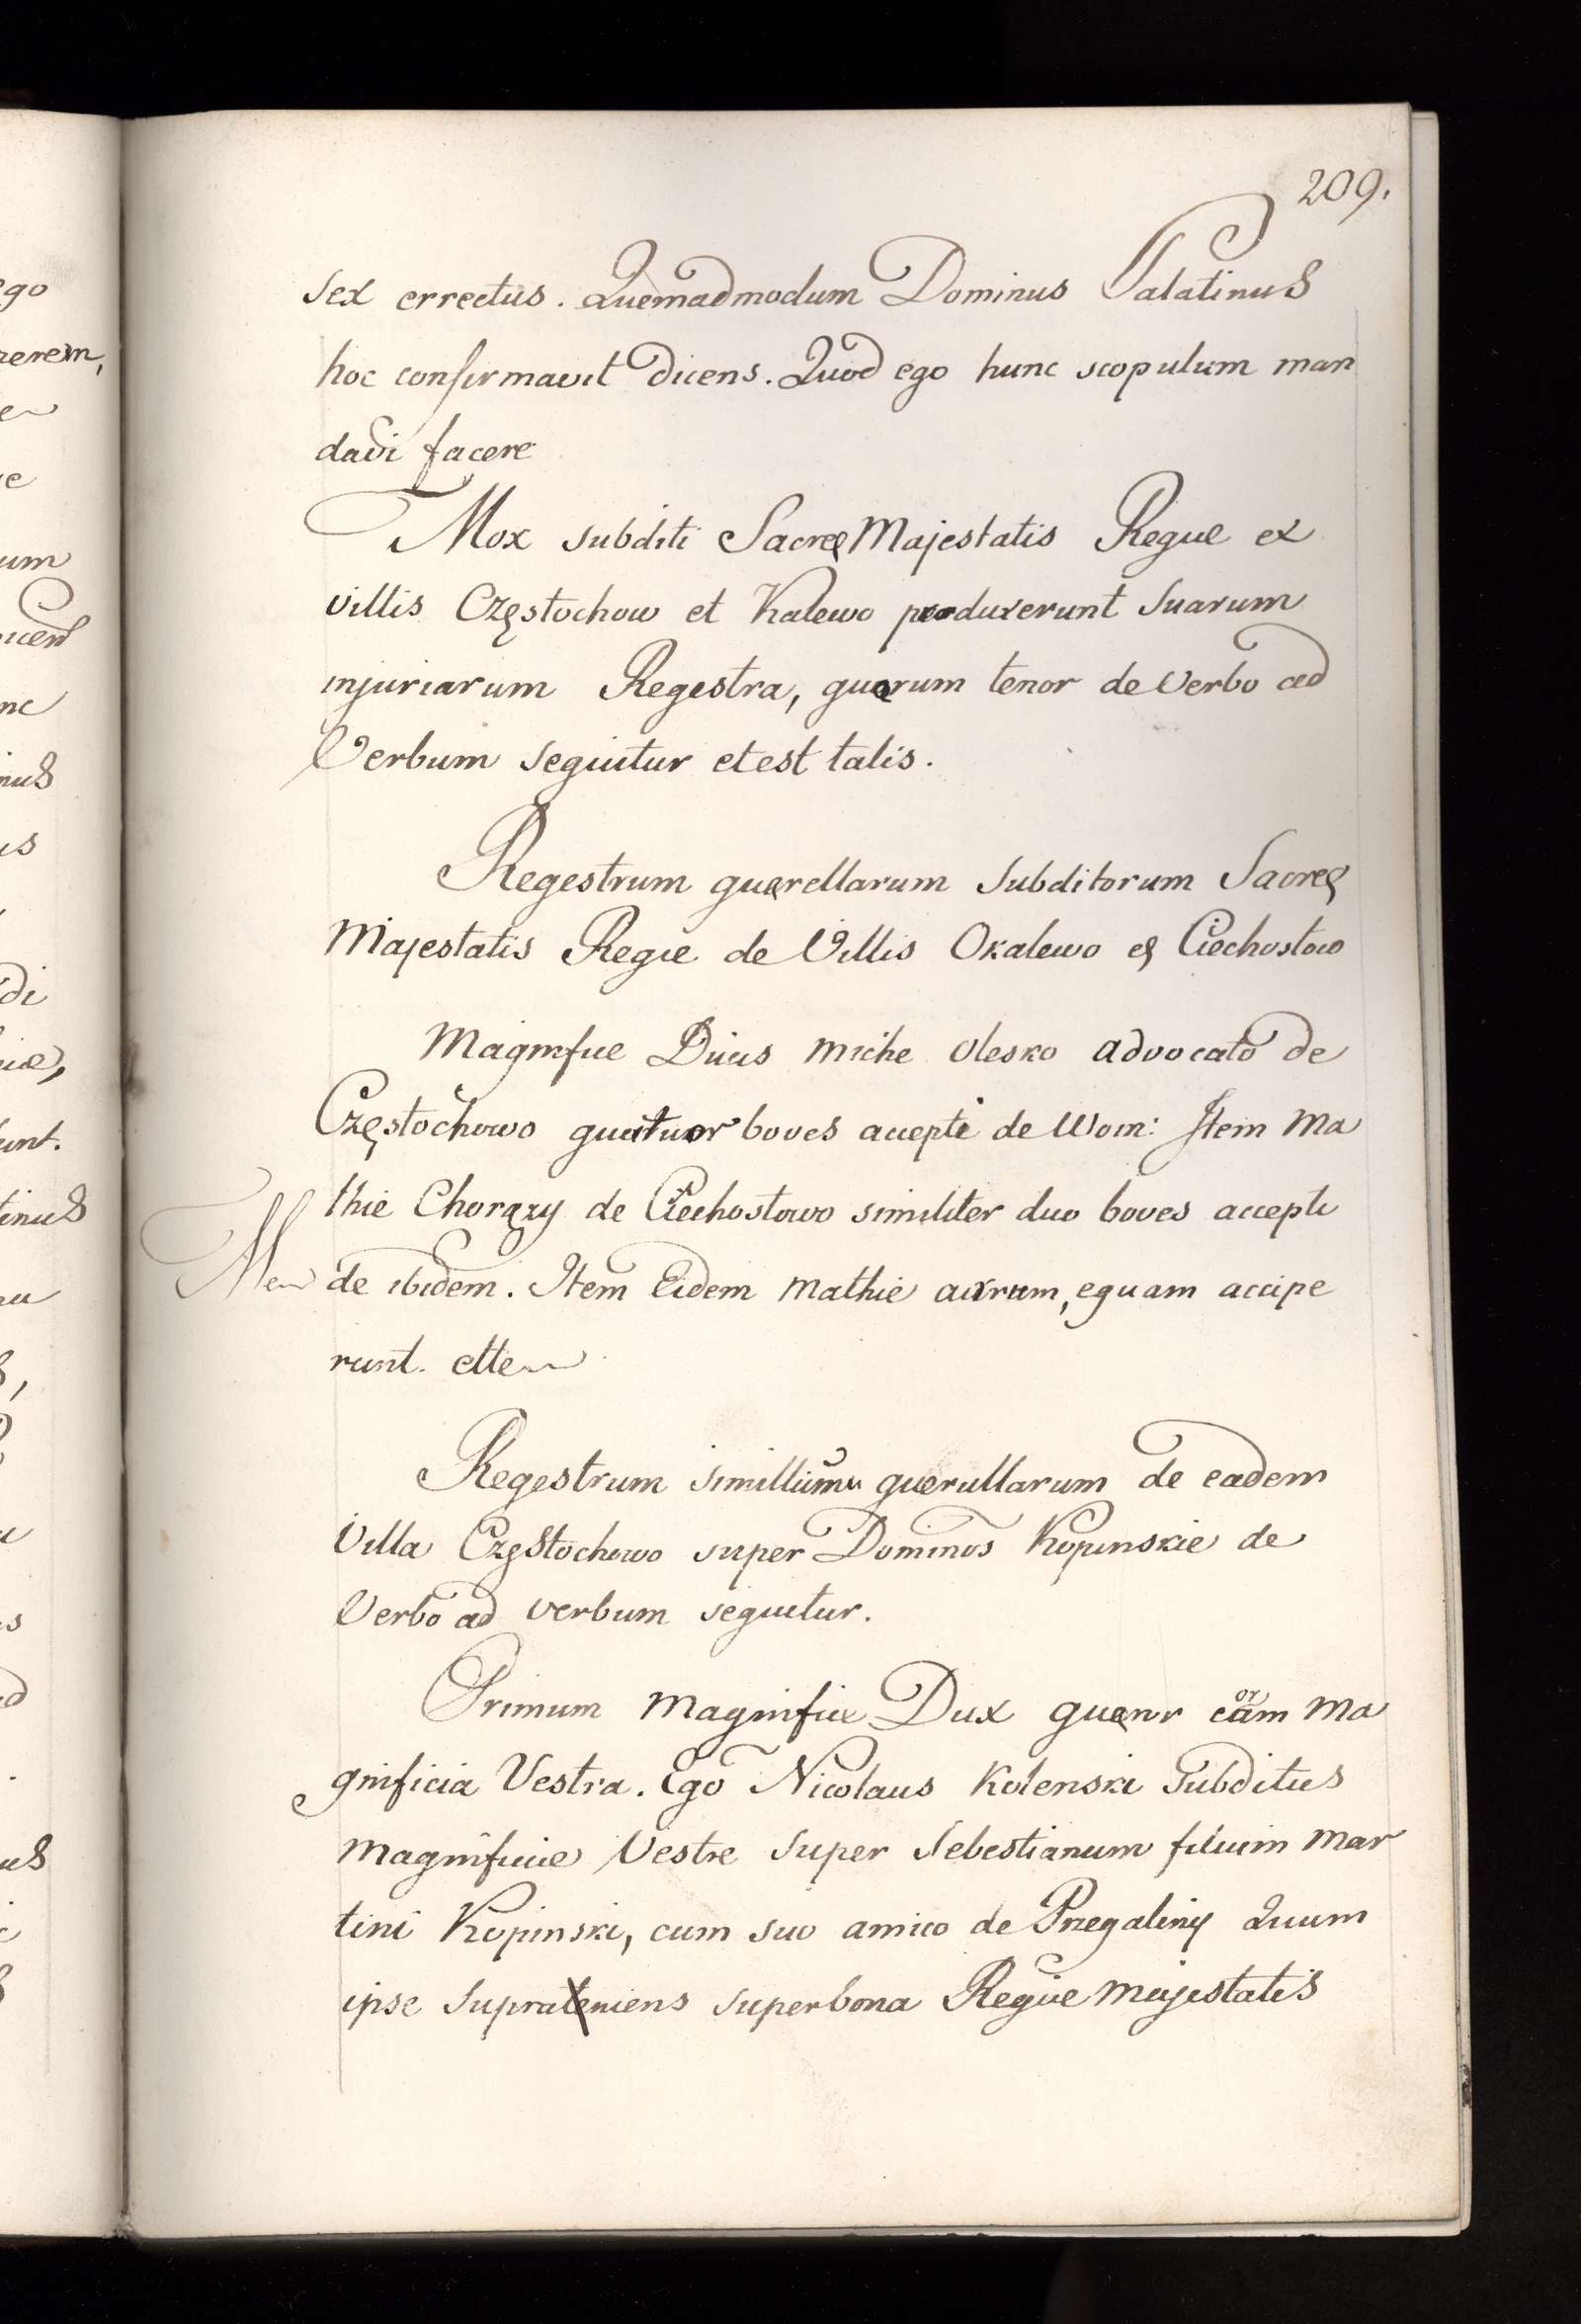 209.
sex errectus. Quemadmodum Dominus Palatinus
hoc confirmavit dicens. Quod ego hunc scopulum man
davi facere
Mox subditi Sacrę Majestatis Regie ex
villis Częstochow et Kalewo produxerunt Suarum
injuriarum Regestra, quorum tenor de Verbo ad
Verbum sequitur et est talis.
Regestrum querellarum Subditorum Sacrę
Majestatis Regie de Villis Okalewo & Ciechostow
Magnifice Duus miche Olesko advocato de
Częstochowo quatuor boves accepti de Wom: Item Ma
thie Chorązy de Ciechostowo similiter duo boves accepti
de ibidem. Item Eidem Mathie aixrum, equam accipe
runt. ette
Regestrum simillimu querullarum de eadem
Villa Częstochowo super Dominos Kopinskie de
Verbo ad verbum sequitur.
Primum Magnifice Dux quenr coram Ma
gnificia Vestra. Ego Nicolaus Kolenski Subditus
Magnificie Vestre Super Sebestianum filium Mar
tini Kopinski, cum suo amico de Przegaliny Quum
ipse Suprateniens super bona Regie Majestatis